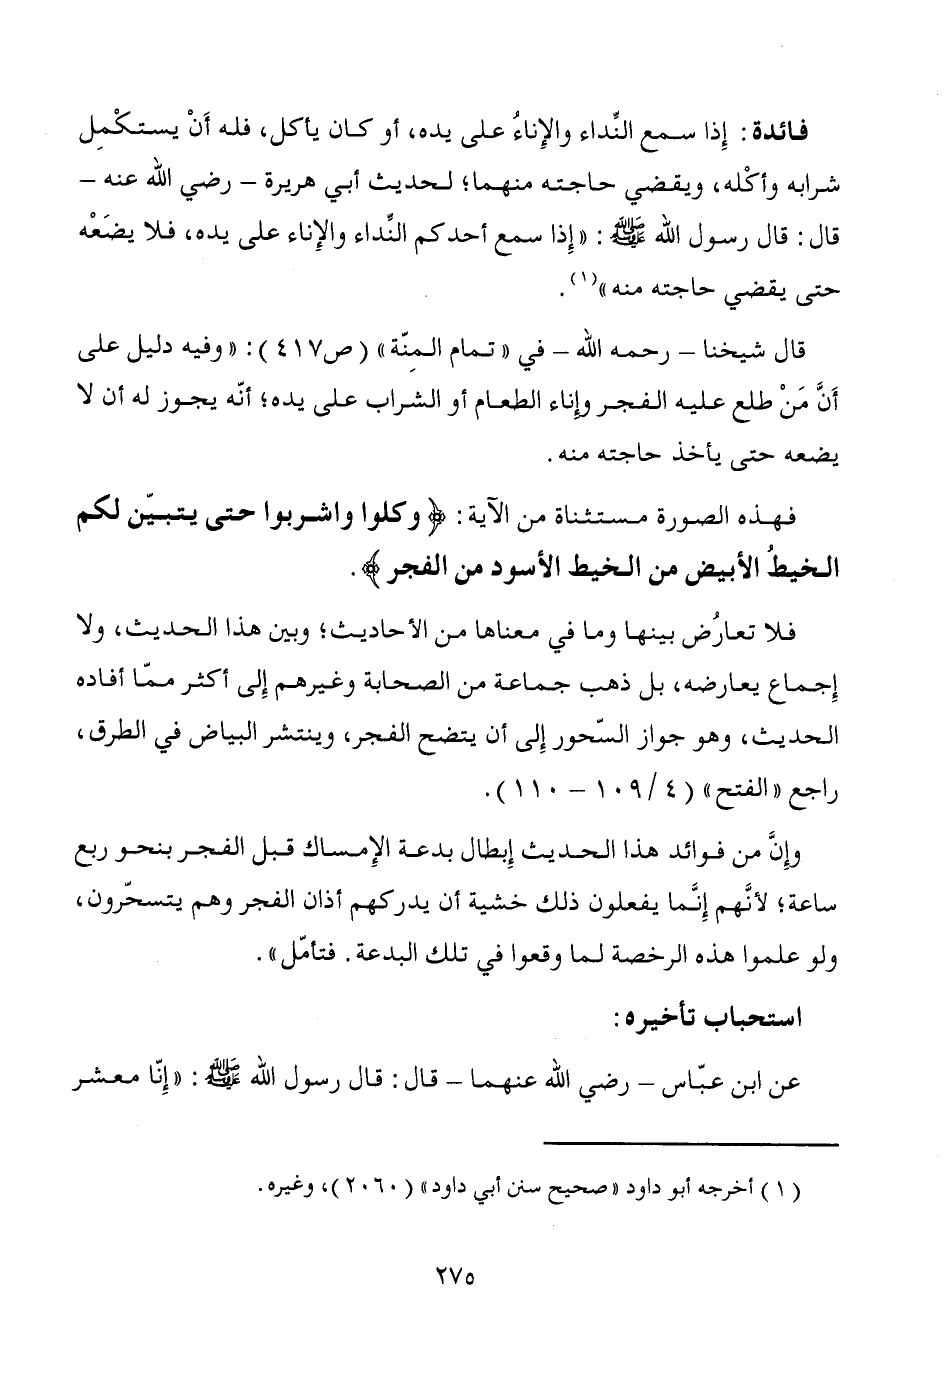 فائدة: إذا سمع النِّداء والإناءُ على يده، أو كان يأكل، فله أنْ يستكْمِل
شرابه وأكْله، ويقضي حاجته منهما؛ لحديث أبي هريرة – رضي الله عنه –
قال: قال رسول الله ﷺ: «إذا سمع أحدكم النِّداء والإناء على يده، فلا يضَعْه
حتى يقضي حاجته منه»(١).
قال شيخنا – رحمه الله – في «تمام المِنّة» (ص٤١٧): «وفيه دليل على
أنَّ مَنْ طلع عليه الفجر وإناء الطعام أو الشراب على يده؛ أنّه يجوز له أن لا
يضعه حتى يأخذ حاجته منه.
فهذه الصورة مستثناة من الآية: ﴿وكلوا واشربوا حتى يتبيّن لكم
الخيطُ الأبيض من الخيط الأسود من الفجر﴾.
فلا تعارُض بينها وما في معناها من الأحاديث؛ وبين هذا الحديث، ولا
إجماع يعارضه، بل ذهب جماعة من الصحابة وغيرهم إلى أكثر ممّا أفاده
الحديث، وهو جواز السّحور إلى أن يتضح الفجر، وينتشر البياض في الطرق،
راجع «الفتح» (٤/ ١٠٩ – ١١٠).
وإنَّ من فوائد هذا الحديث إبطال بدعة الإمساك قبل الفجر بنحو ربع
ساعة؛ لأنَّهم إنَّما يفعلون ذلك خشية أن يدركهم أذان الفجر وهم يتسحّرون،
ولو علموا هذه الرخصة لما وقعوا في تلك البدعة. فتأمّل».
استحباب تأخيره:
عن ابن عبّاس – رضي الله عنهما – قال: قال رسول الله ﷺ: «إنّا معشر
(١) أخرجه أبو داود «صحيح سنن أبي داود» (٢٠٦٠)، وغيره.
٢٧٥